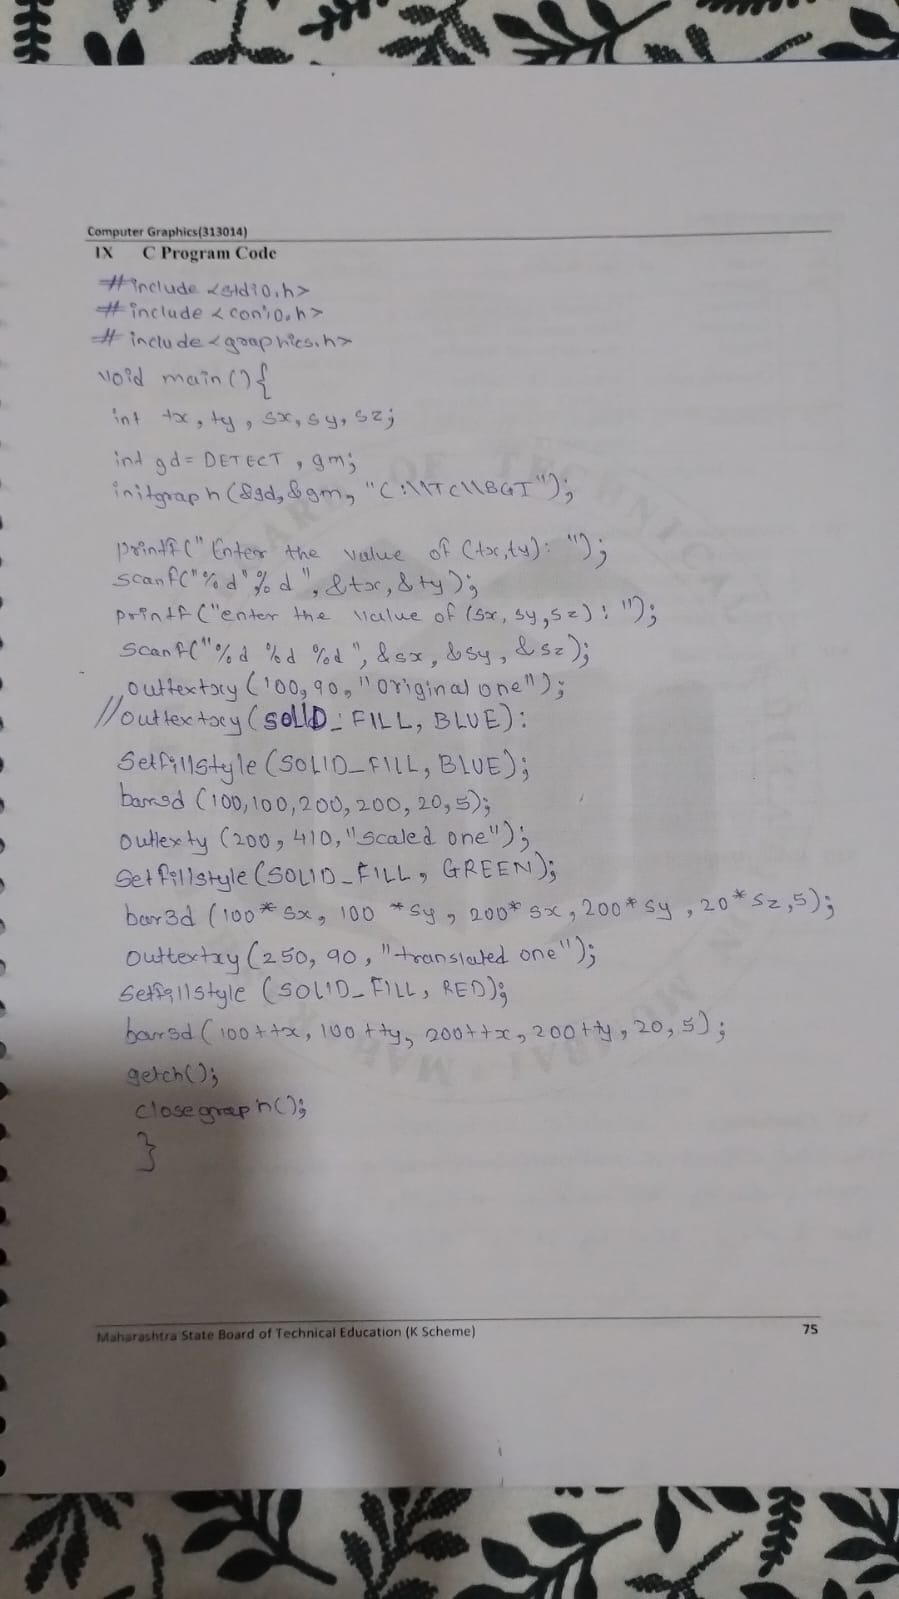 Computer Graphics(313014)
IX C Program Code
#include <stdio.h>
#include <conio.h>
#include <graphics.h>
void main(){
int tx, ty, sx, sy, sz;
int gd = DETECT, gm;
initgraph(&gd, &gm, "C:\\TC\\BGI");
printf("Enter the value of (tx,ty): ");
scanf("%d"%d", &tx, &ty);
printf("enter the value of (sx, sy, sz): ");
scanf("%d %d %d", &sx, &sy, &sz);
outtextxy(100, 90, "Original one");
//outtextxy(SOLID_FILL, BLUE):
Setfillstyle(SOLID_FILL, BLUE);
bar3d (100,100,200,200,20,5);
outtexty (200, 410, "scaled one");
Setfillstyle(SOLID_FILL, GREEN);
bar3d (100*sx, 100 *sy, 200*sx, 200*sy, 20*sz,5);
outtextxy(250, 90, "translated one");
Setfillstyle (SOLID_FILL, RED);
bar3d(100+tx, 100+ty, 200+tx, 200+ty, 20, 5);
getch();
closegraph();
}
MAHARASHTRA STATE BOARD OF TECHNICAL EDUCATION MUMBAI
Maharashtra State Board of Technical Education (K Scheme) 75